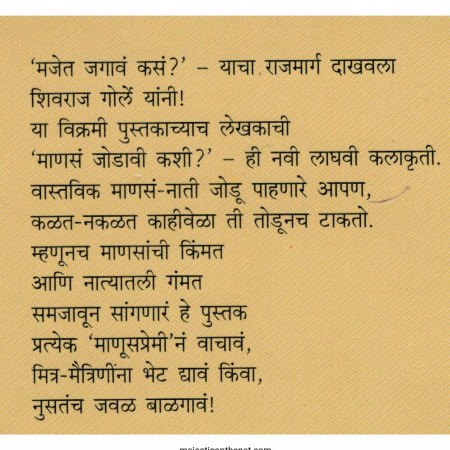 ‘मजेत जगावं कसं?’ – याचा राजमार्ग दाखवला
शिवराज गोर्ले यांनी!
या विक्रमी पुस्तकाच्याच लेखकाची
‘माणसं जोडावी कशी?’ – ही नवी लाघवी कलाकृती.
वास्तविक माणसं-नाती जोडू पाहणारे आपण,
कळत-नकळत काहीवेळा ती तोडूनच टाकतो.
म्हणूनच माणसांची किंमत
आणि नात्यातली गंमत
समजावून सांगणारं हे पुस्तक
प्रत्येक ‘माणूसप्रेमी’नं वाचावं,
मित्र-मैत्रिणींना भेट द्यावं किंवा,
नुसतंच जवळ बाळगावं!